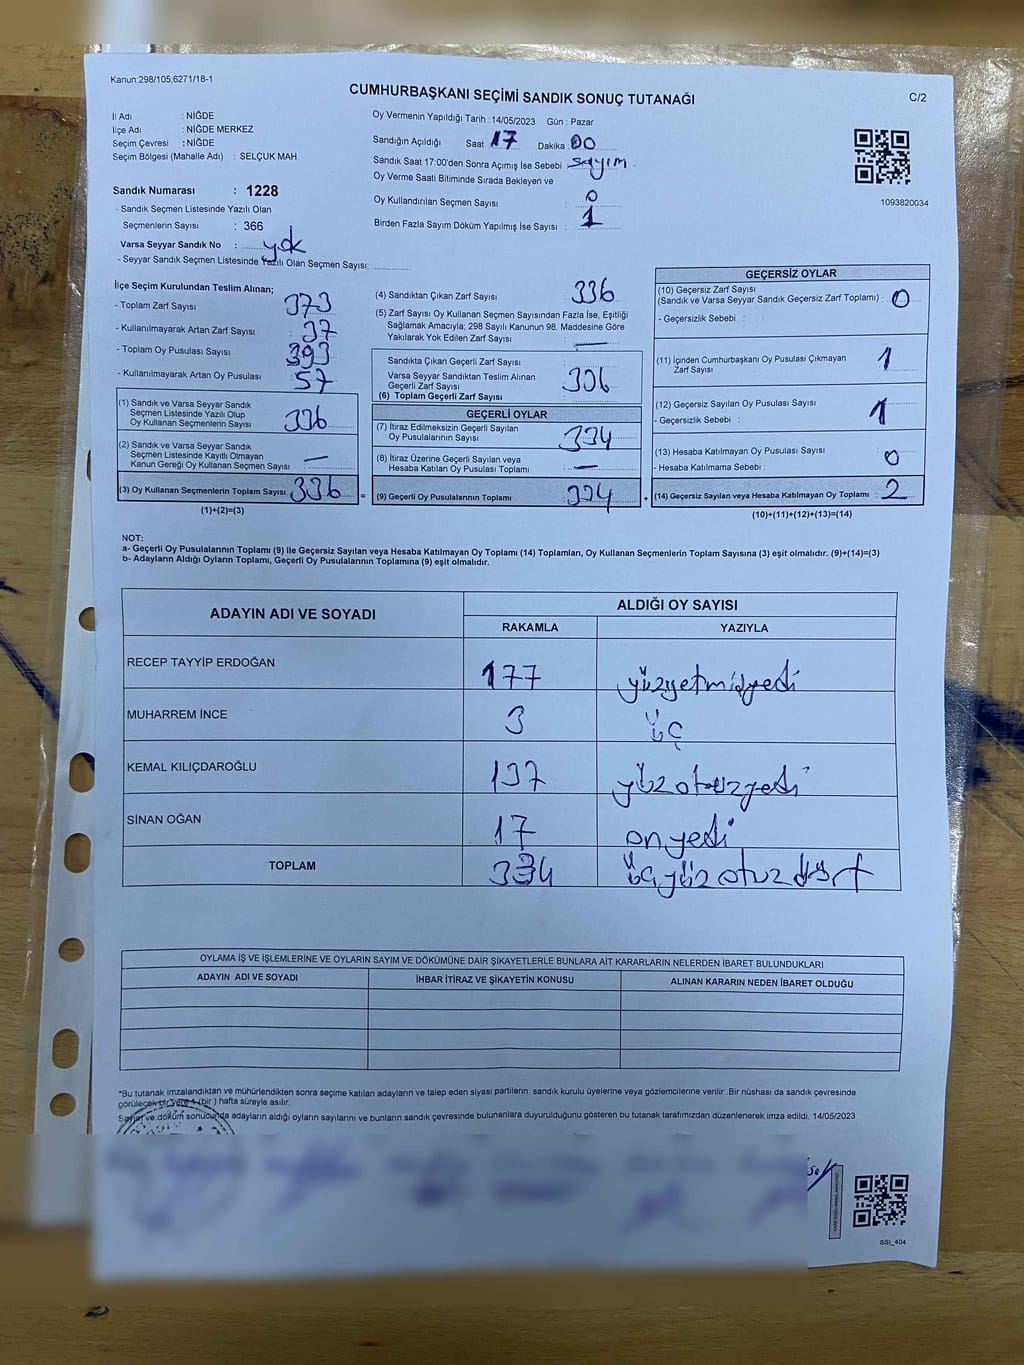 Kanun:298/105,6271/18-1
CUMHURBAŞKANI SEÇİMİ SANDIK SONUÇ TUTANAĞI
C/2
İl Adı : NİĞDE
İlçe Adı : NİĞDE MERKEZ
Seçim Çevresi : NİĞDE
Seçim Bölgesi (Mahalle Adı) : SELÇUK MAH
Oy Vermenin Yapıldığı Tarih :14/05/2023 Gün : Pazar
Sandığın Açıldığı Saat 17 Dakika :00
Sandık Saat 17:00'den Sonra Açımış İse Sebebi : sayım
Oy Verme Saati Bitiminde Sırada Bekleyen ve
Oy Kullandırılan Seçmen Sayısı : 0
Birden Fazla Sayım Döküm Yapılmış İse Sayısı : 1
1093820034
Sandık Numarası : 1228
- Sandık Seçmen Listesinde Yazılı Olan
Seçmenlerin Sayısı : 366
Varsa Seyyar Sandık No : yok
- Seyyar Sandık Seçmen Listesinde Yazılı Olan Seçmen Sayısı:
İlçe Seçim Kurulundan Teslim Alınan;
- Toplam Zarf Sayısı : 373
- Kullanılmayarak Artan Zarf Sayısı : 37
- Toplam Oy Pusulası Sayısı : 393
- Kullanılmayarak Artan Oy Pusulası : 57
(1) Sandık ve Varsa Seyyar Sandık
Seçmen Listesinde Yazılı Olup
Oy Kullanan Seçmenlerin Sayısı : 336
(2) Sandık ve Varsa Seyyar Sandık
Seçmen Listesinde Kayıtlı Olmayan
Kanun Gereği Oy Kullanan Seçmen Sayısı : —
(3) Oy Kullanan Seçmenlerin Toplam Sayısı : 336
(1)+(2)=(3)
(4) Sandıktan Çıkan Zarf Sayısı : 336
(5) Zarf Sayısı Oy Kullanan Seçmen Sayısından Fazla İse, Eşitliği
Sağlamak Amacıyla; 298 Sayılı Kanunun 98. Maddesine Göre
Yakılarak Yok Edilen Zarf Sayısı : —
Sandıkta Çıkan Geçerli Zarf Sayısı :
Varsa Seyyar Sandıktan Teslim Alınan
Geçerli Zarf Sayısı : 336
(6) Toplam Geçerli Zarf Sayısı :
GEÇERLİ OYLAR
(7) İtiraz Edilmeksizin Geçerli Sayılan
Oy Pusulalarının Sayısı : 334
(8) İtiraz Üzerine Geçerli Sayılan veya
Hesaba Katılan Oy Pusulası Toplamı : —
= (9) Geçerli Oy Pusulalarının Toplamı : 334
GEÇERSİZ OYLAR
(10) Geçersiz Zarf Sayısı
(Sandık ve Varsa Seyyar Sandık Geçersiz Zarf Toplamı) : 0
- Geçersizlik Sebebi :
(11) İçinden Cumhurbaşkanı Oy Pusulası Çıkmayan
Zarf Sayısı : 1
(12) Geçersiz Sayılan Oy Pusulası Sayısı : 1
- Geçersizlik Sebebi :
(13) Hesaba Katılmayan Oy Pusulası Sayısı : 0
- Hesaba Katılmama Sebebi :
+ (14) Geçersiz Sayılan veya Hesaba Katılmayan Oy Toplamı : 2
(10)+(11)+(12)+(13)=(14)
NOT:
a- Geçerli Oy Pusulalarının Toplamı (9) ile Geçersiz Sayılan veya Hesaba Katılmayan Oy Toplamı (14) Toplamları, Oy Kullanan Seçmenlerin Toplam Sayısına (3) eşit olmalıdır. (9)+(14)=(3)
b- Adayların Aldığı Oyların Toplamı, Geçerli Oy Pusulalarının Toplamına (9) eşit olmalıdır.
ADAYIN ADI VE SOYADI
ALDIĞI OY SAYISI
RAKAMLA YAZIYLA
RECEP TAYYİP ERDOĞAN 177 yüzyetmişyedi
MUHARREM İNCE 3 üç
KEMAL KILIÇDAROĞLU 137 yüzotuzyedi
SİNAN OĞAN 17 onyedi
TOPLAM 334 üçyüzotuzdört
OYLAMA İŞ VE İŞLEMLERİNE VE OYLARIN SAYIM VE DÖKÜMÜNE DAİR ŞİKAYETLERLE BUNLARA AİT KARARLARIN NELERDEN İBARET BULUNDUKLARI
ADAYIN ADI VE SOYADI İHBAR İTİRAZ VE ŞİKAYETİN KONUSU ALINAN KARARIN NEDEN İBARET OLDUĞU
*Bu tutanak imzalandıktan ve mühürlendikten sonra seçime katılan adayların ve talep eden siyasi partilerin sandık kurulu üyelerine veya gözlemcilerine verilir .Bir nüshası da sandık çevresinde
görülecek bir yere 1 (bir ) hafta süreyle asılır.
Sayım ve döküm sonucunda adayların aldığı oyların sayılarını ve bunların sandık çevresinde bulunanlara duyurulduğunu gösteren bu tutanak tarafımızdan düzenlenerek imza edildi. 14/05/2023
SSI_404